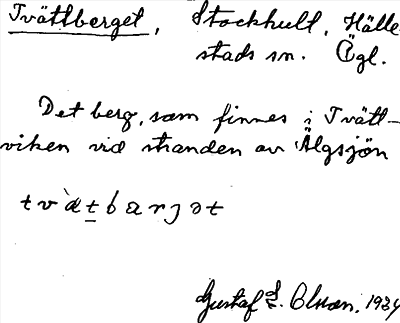 Tvättberget, Stockhult, Hälle-
stads sn. Ögl.
Det berg, som finnes i Tvätt-
viken vid stranden av Älgsjön
tvä̀tbarjət
Gustaf